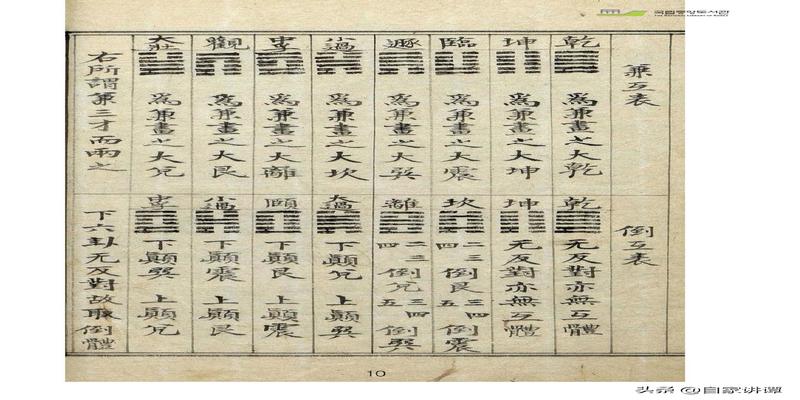 국립중앙도서관
THE NATIONAL LIBRARY OF KOREA
兼互表
乾 為兼畫之大乾
坤 為兼畫之大坤
臨 為兼畫之大震
遯 為兼畫之大巽
小過 為兼畫之大坎
中孚 為兼畫之大離
觀 為兼畫之大艮
大壯 為兼畫之大兌
右所謂兼三才而兩之
倒互表
乾 无反對亦無互體
坤 无反對亦無互體
坎 二三四倒艮 三四五倒震
離 二三四倒兌 三四五倒巽
大過 下顛兌 上顛巽
頤 下顛艮 上顛震
小過 下顛震 上顛艮
中孚 下顛巽 上顛兌
下六卦无反對故取倒體
10
头条 @自家讲谭